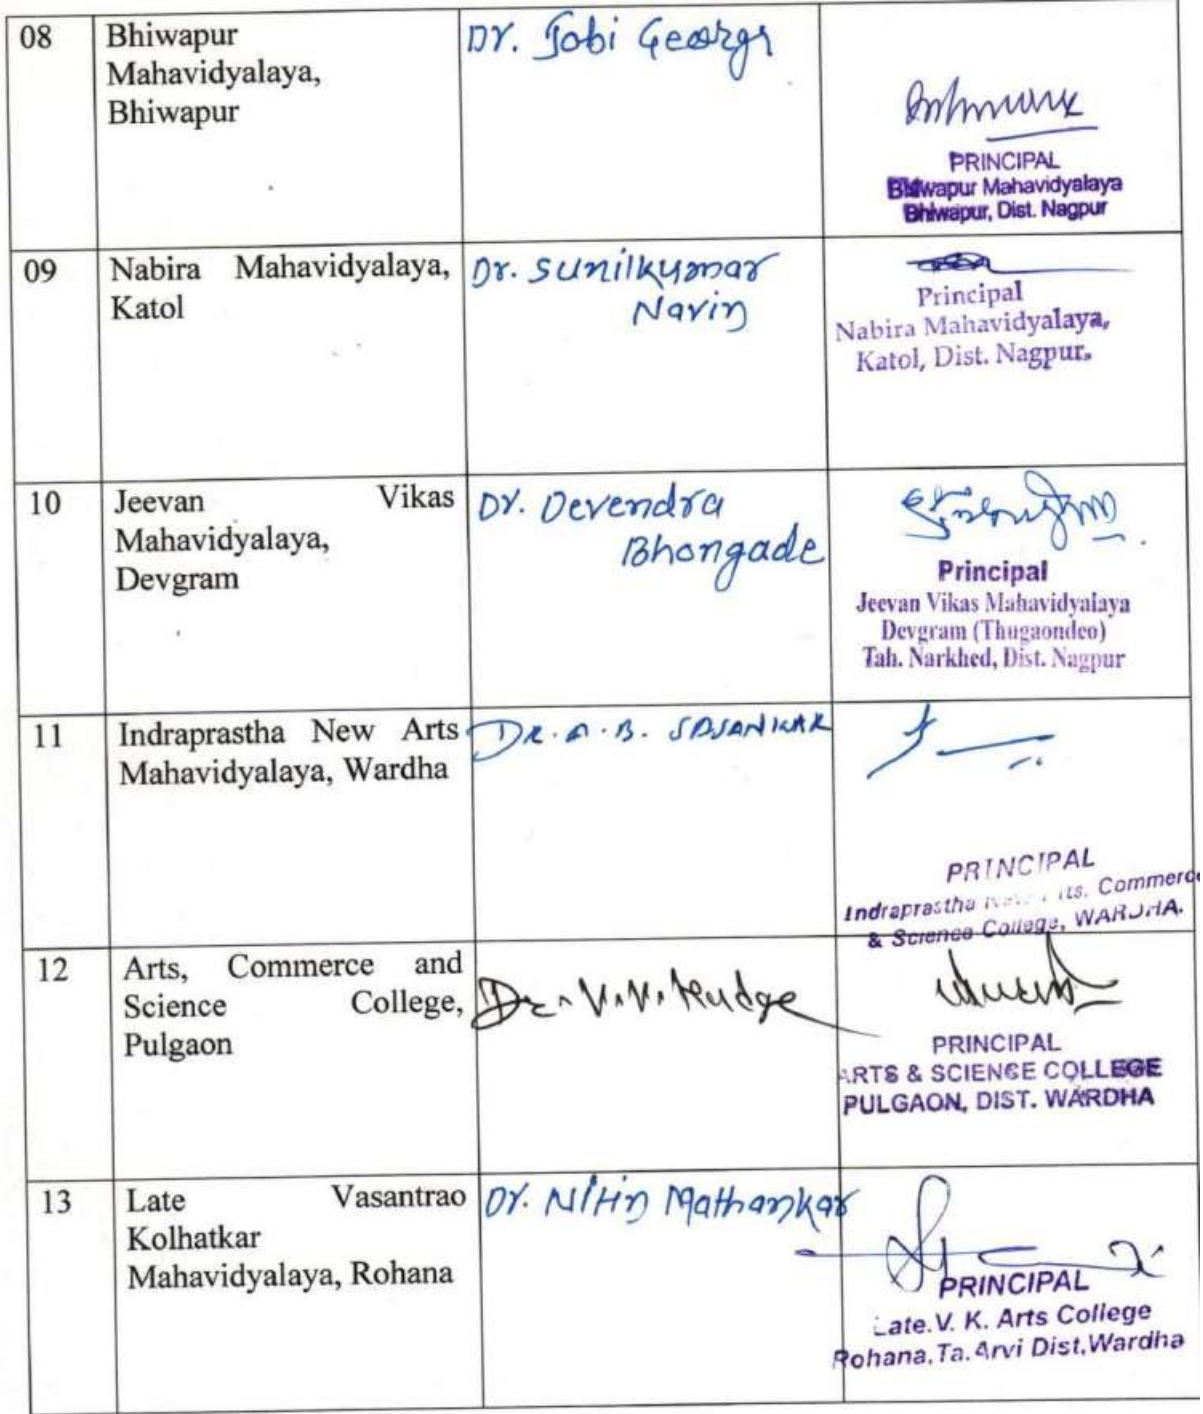 08
Bhiwapur
Mahavidyalaya,
Bhiwapur
Dr. Jobi George
PRINCIPAL
Bhiwapur Mahavidyalaya
Bhiwapur, Dist. Nagpur
09
Nabira Mahavidyalaya,
Katol
Dr. Sunilkumar
Navin
Principal
Nabira Mahavidyalaya,
Katol, Dist. Nagpur.
10
Jeevan Vikas
Mahavidyalaya,
Devgram
Dr. Devendra
Bhongade
Principal
Jeevan Vikas Mahavidyalaya
Devgram (Thugaondeo)
Tah. Narkhed, Dist. Nagpur
11
Indraprastha New Arts
Mahavidyalaya, Wardha
DR. A. B. SASANKAR
PRINCIPAL
Indraprastha Commerce
& Science College, WARDHA.
12
Arts, Commerce and
Science College,
Pulgaon
Dr. V. V.
PRINCIPAL
ARTS & SCIENCE COLLEGE
PULGAON, DIST. WARDHA
13
Late Vasantrao
Kolhatkar
Mahavidyalaya, Rohana
Dr. Nitin Mathankar
PRINCIPAL
Late. V. K. Arts College
Rohana, Ta. Arvi Dist, Wardha